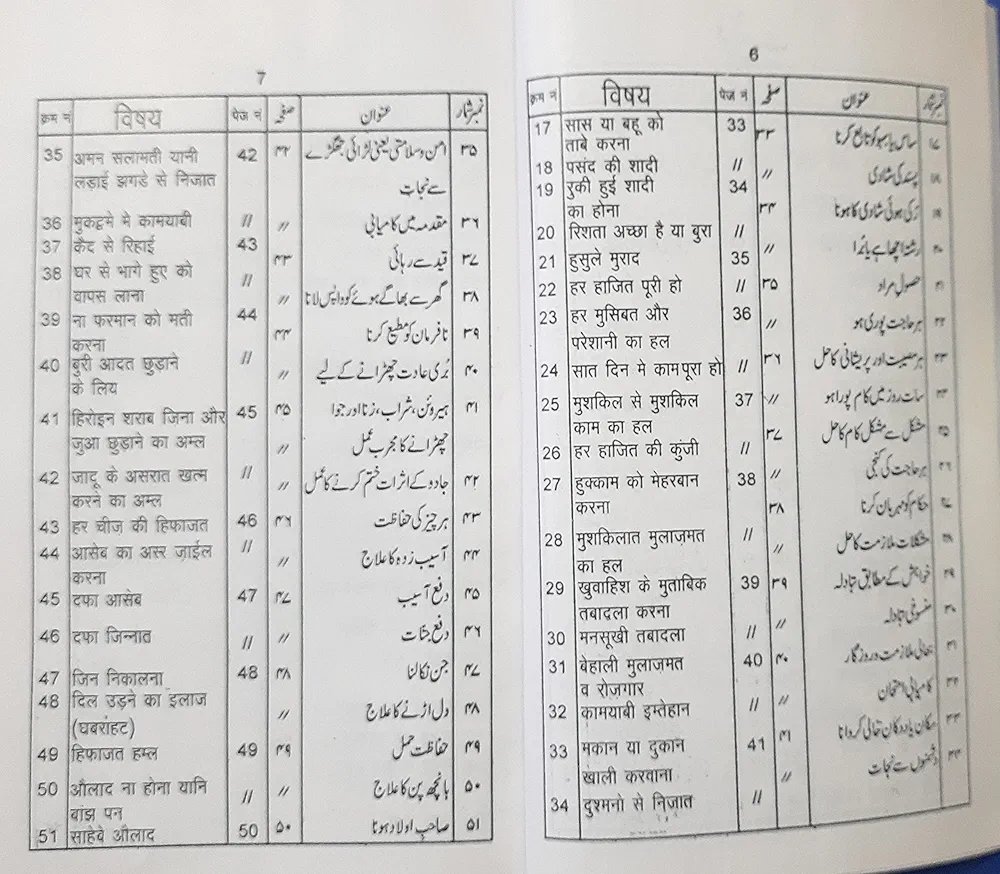 6
क्रम नं विषय पेज नं صفحہ عنوان نمبر شمار
17 सास या बहू को 33 ۳۳ ساس یا بہو کو تابع کرنا ۱۷
ताबे करना
18 पसंद की शादी // // پسند کی شادی ۱۸
19 रुकी हुई शादी 34 ۳۴ رُکی ہوئی شادی کا ہونا ۱۹
का होना
20 रिशता अच्छा है या बुरा // // رشتہ اچھا ہے یا بُرا ۲۰
21 हुसुले मुराद 35 ۳۵ حصولِ مراد ۲۱
22 हर हाजित पूरी हो // // ہر حاجت پوری ہو ۲۲
23 हर मुसिबत और 36 ۳۶ ہر مصیبت اور پریشانی کا حل ۲۳
परेशानी का हल
24 सात दिन मे काम पूरा हो // // سات روز میں کام پورا ہو ۲۴
25 मुशकिल से मुशकिल 37 ۳۷ مشکل سے مشکل کام کا حل ۲۵
काम का हल
26 हर हाजित की कुंजी // // ہر حاجت کی کنجی ۲۶
27 हुक्काम को मेहरबान 38 ۳۸ حکام کو مہربان کرنا ۲۷
करना
28 मुशकिलात मुलाज़मत // // مشکلات ملازمت کا حل ۲۸
का हल
29 खुवाहिश के मुताबिक 39 ۳۹ خواہش کے مطابق تبادلہ ۲۹
तबादला करना
30 मनसूखी तबादला // // منسوخی تبادلہ ۳۰
31 बेहाली मुलाज़मत 40 ۴۰ بحالی ملازمت و روزگار ۳۱
व रोज़गार
32 कामयाबी इम्तेहान // // کامیابی امتحان ۳۲
33 मकान या दुकान 41 ۴۱ مکان یا دوکان خالی کروانا ۳۳
खाली करवाना
34 दुश्मनो से निजात // // دشمنوں سے نجات ۳۴
7
क्रम नं विषय पेज नं صفحہ عنوان نمبر شمار
35 अमन सलामती यानी 42 ۴۲ امن و سلامتی یعنی لڑائی جھگڑے ۳۵
लड़ाई झगडे से निजात سے نجات
36 मुकद्दमे मे कामयाबी // // مقدمہ میں کامیابی ۳۶
37 कैद से रिहाई 43 ۴۳ قید سے رہائی ۳۷
38 घर से भागे हुए को // // گھر سے بھاگے ہوئے کو واپس لانا ۳۸
वापस लाना
39 ना फरमान को मती 44 ۴۴ نافرمان کو مطیع کرنا ۳۹
करना
40 बुरी आदत छुड़ाने // // بُری عادت چھڑانے کے لیے ۴۰
के लिय
41 हिरोइन शराब जिना और 45 ۴۵ ہیروئن، شراب، زنا اور جوا ۴۱
जुआ छुड़ाने का अम्ल چھڑانے کا مجرب عمل
42 जादू के असरात खत्म // // جادو کے اثرات ختم کرنے کا عمل ۴۲
करने का अम्ल
43 हर चीज की हिफाजत 46 ۴۶ ہر چیز کی حفاظت ۴۳
44 आसेब का अस्र ज़ाईल // // آسیب زدہ کا علاج ۴۴
करना
45 दफा आसेब 47 ۴۷ دفع آسیب ۴۵
46 दफा जिन्नात // // دفع جنّات ۴۶
47 जिन निकालना 48 ۴۸ جن نکالنا ۴۷
48 दिल उड़ने का इलाज // دل اڑنے کا علاج ۴۸
(घबरांहट)
49 हिफाजत हम्ल 49 ۴۹ حفاظت حمل ۴۹
50 औलाद ना होना यानि // // بانجھ پن کا علاج ۵۰
बांझ पन
51 साहेबे औलाद 50 ۵۰ صاحب اولاد ہونا ۵۱